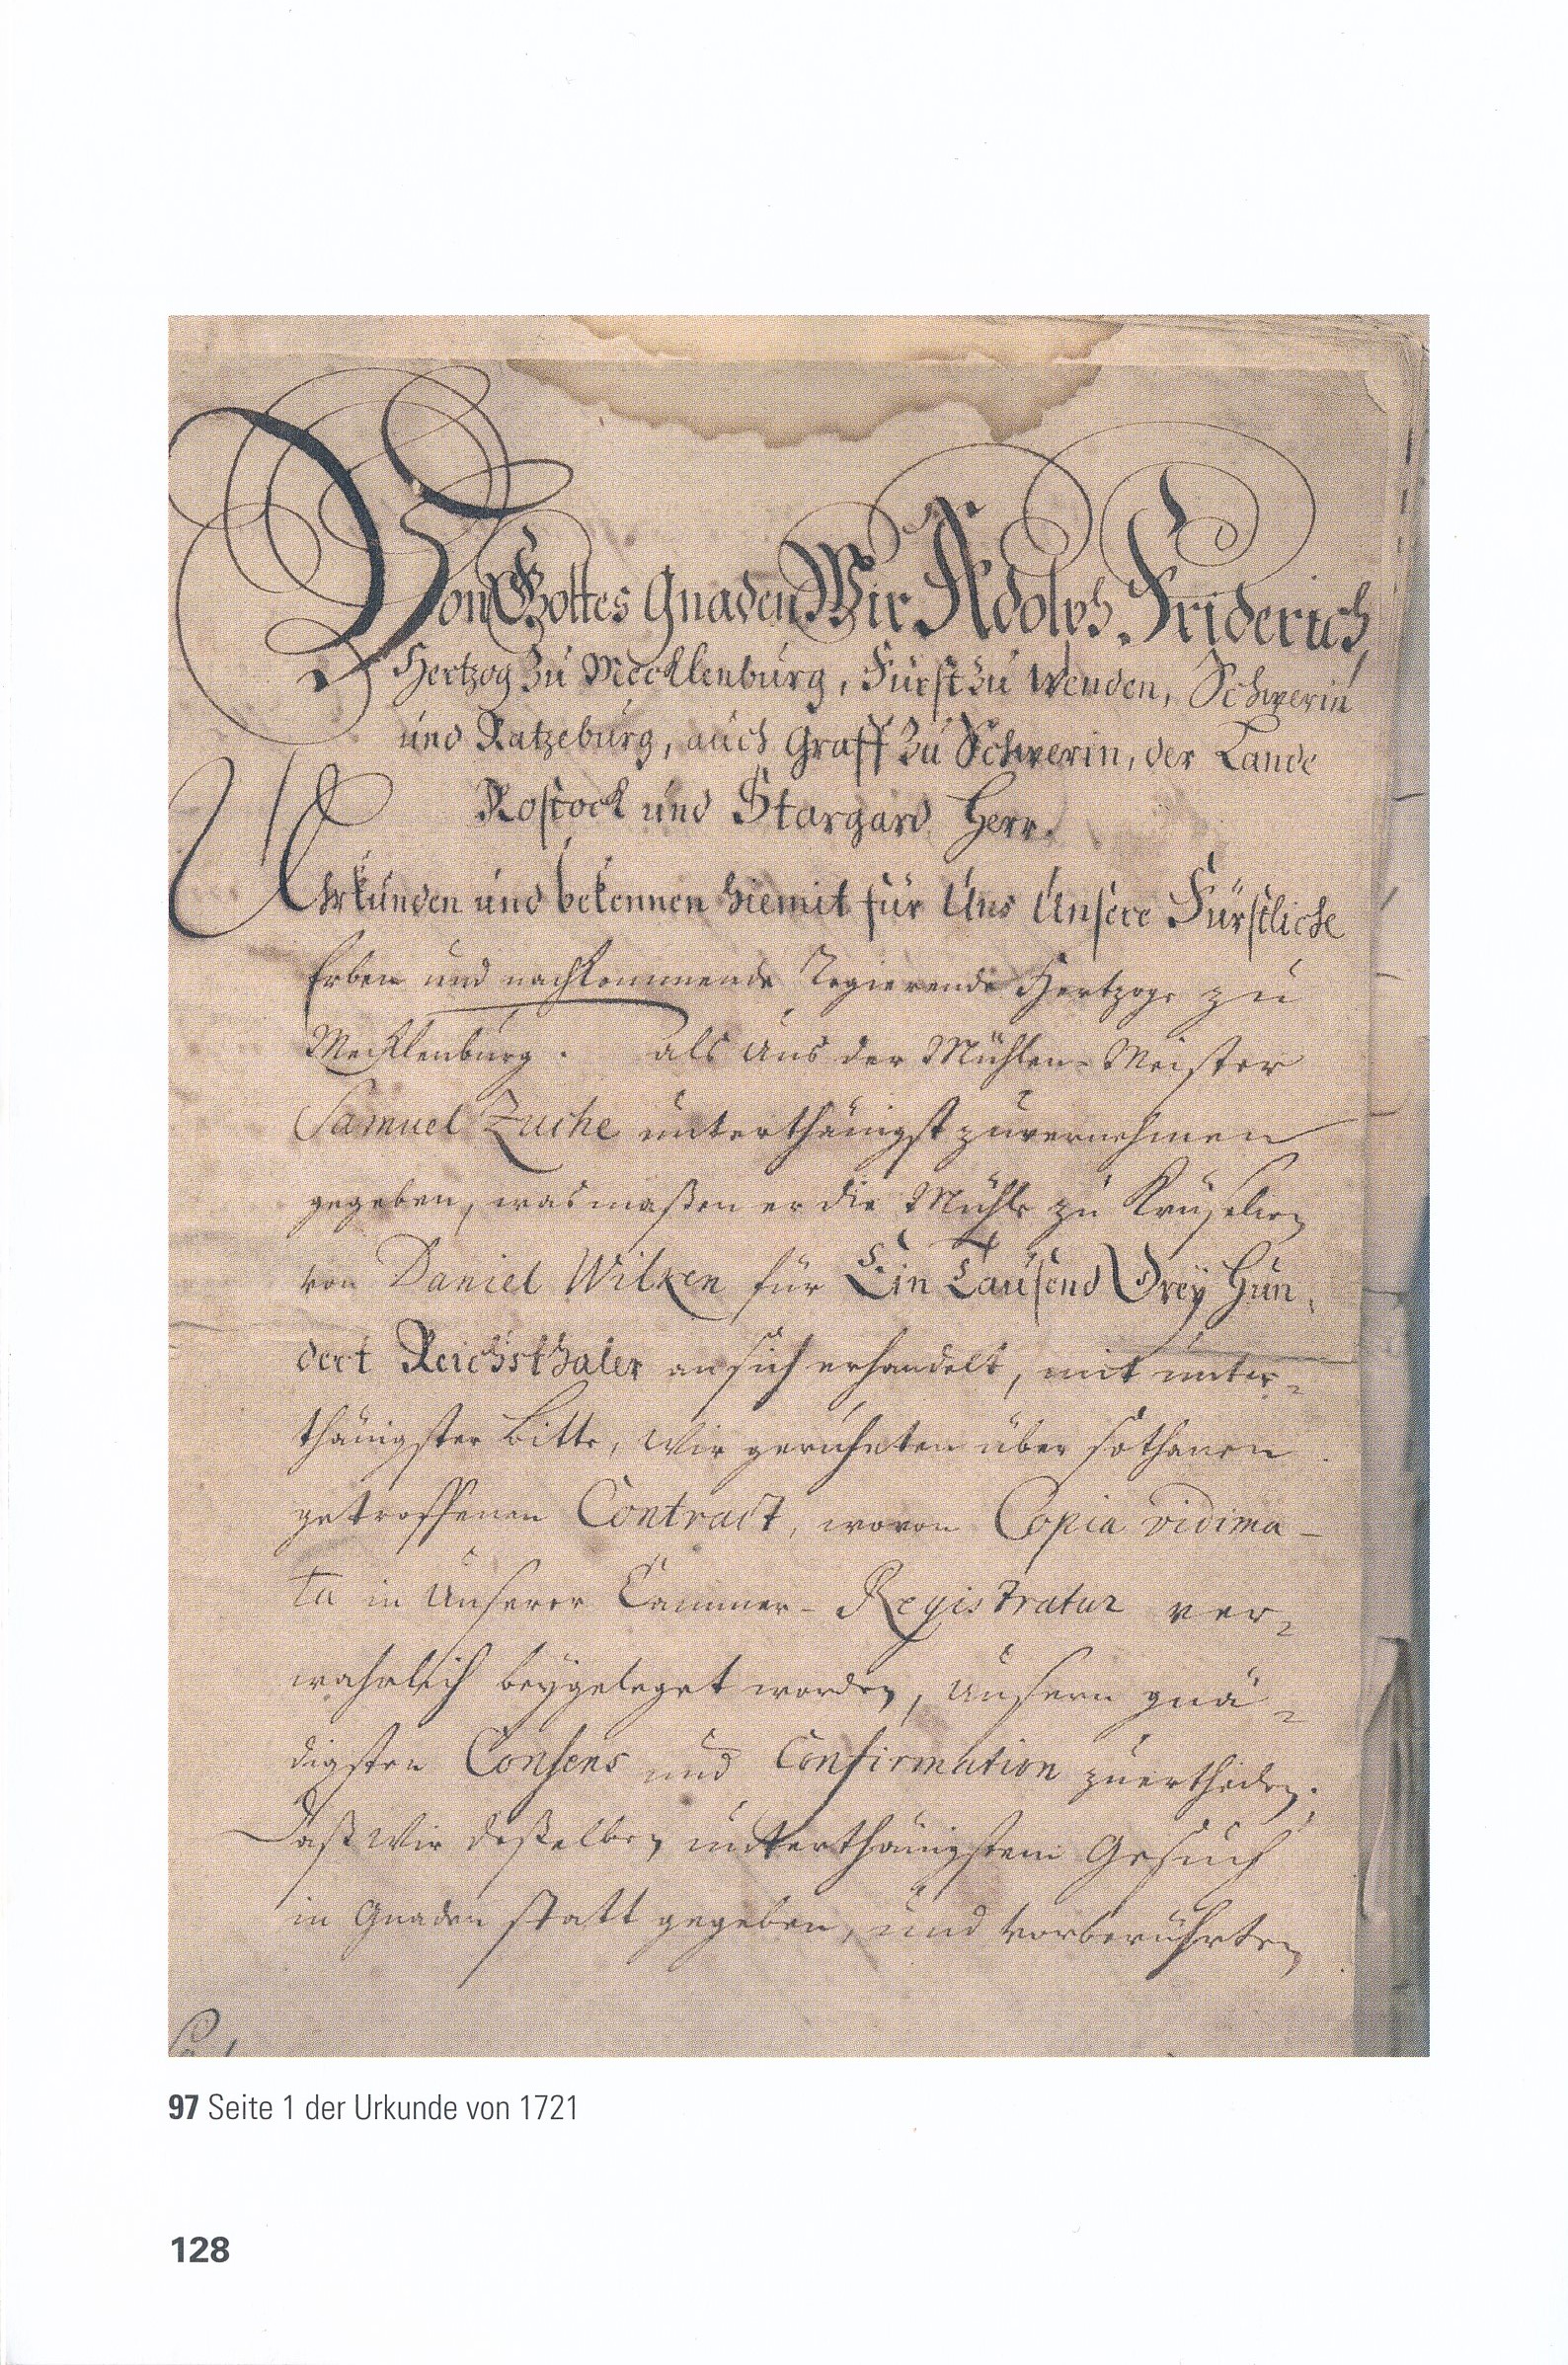 Von Gottes Gnaden Wir Adolph Friderich,
Hertzog zu Mecklenburg, Fürst zu Wenden, Schwerin
und Ratzeburg, auch Graff zu Schwerin, der Lande
Rostock und Stargard Herr.
Uhrkunden und bekennen hiemit für Uns Unsere Fürstliche
Erben und nachkommende Regierende Hertzoge zu
Mecklenburg. als Uns der Mühlen-Meister
Samuel Zuche unterthänigst zuvernehmen
gegeben, was maßen er die Mühle zu Krüselin
von Daniel Wilken für Ein Tausend Drey Hun-
dert Reichsthaler an sich erhandelt, mit unter-
thänigster Bitte, Wir geruheten über sothanen
getroffenen Contract, wovon Copia vidima-
ta in Unserer Cammer-Registratur ver-
wahrlich beygeleget worden, Unsern gnä-
digsten Consens und Confirmation zuertheilen.
Daß Wir deßelben unterthänigstem Gesuch
in Gnaden statt gegeben, und vorberührten
97 Seite 1 der Urkunde von 1721
128